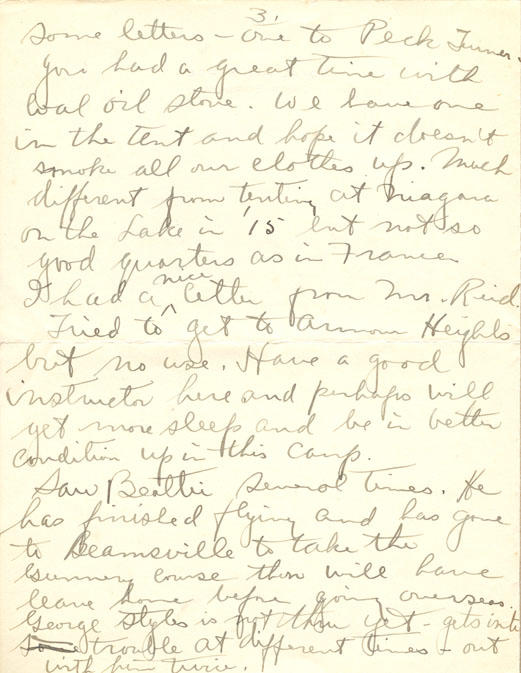 3.
some letters - one to Peck Turner -
you had a great time with
coal oil stove. We have one
in the tent and hope it doesn't
smoke all our clothes up. Much
different from tenting at Niagara
on the Lake in '15 but not so
good quarters as in France
I had a nice letter from Mr. Reid.
Tried to get to Armour Heights
but no use. Have a good
instructor here and perhaps will
get more sleep and be in better
condition up in this camp.
Saw Beattie several times. He
has finished flying and has gone
to Beamsville to take the
Gunnery course then will have
leave home before going overseas.
George Styles is not thru yet - gets into
some trouble at different times - out
with him twice.